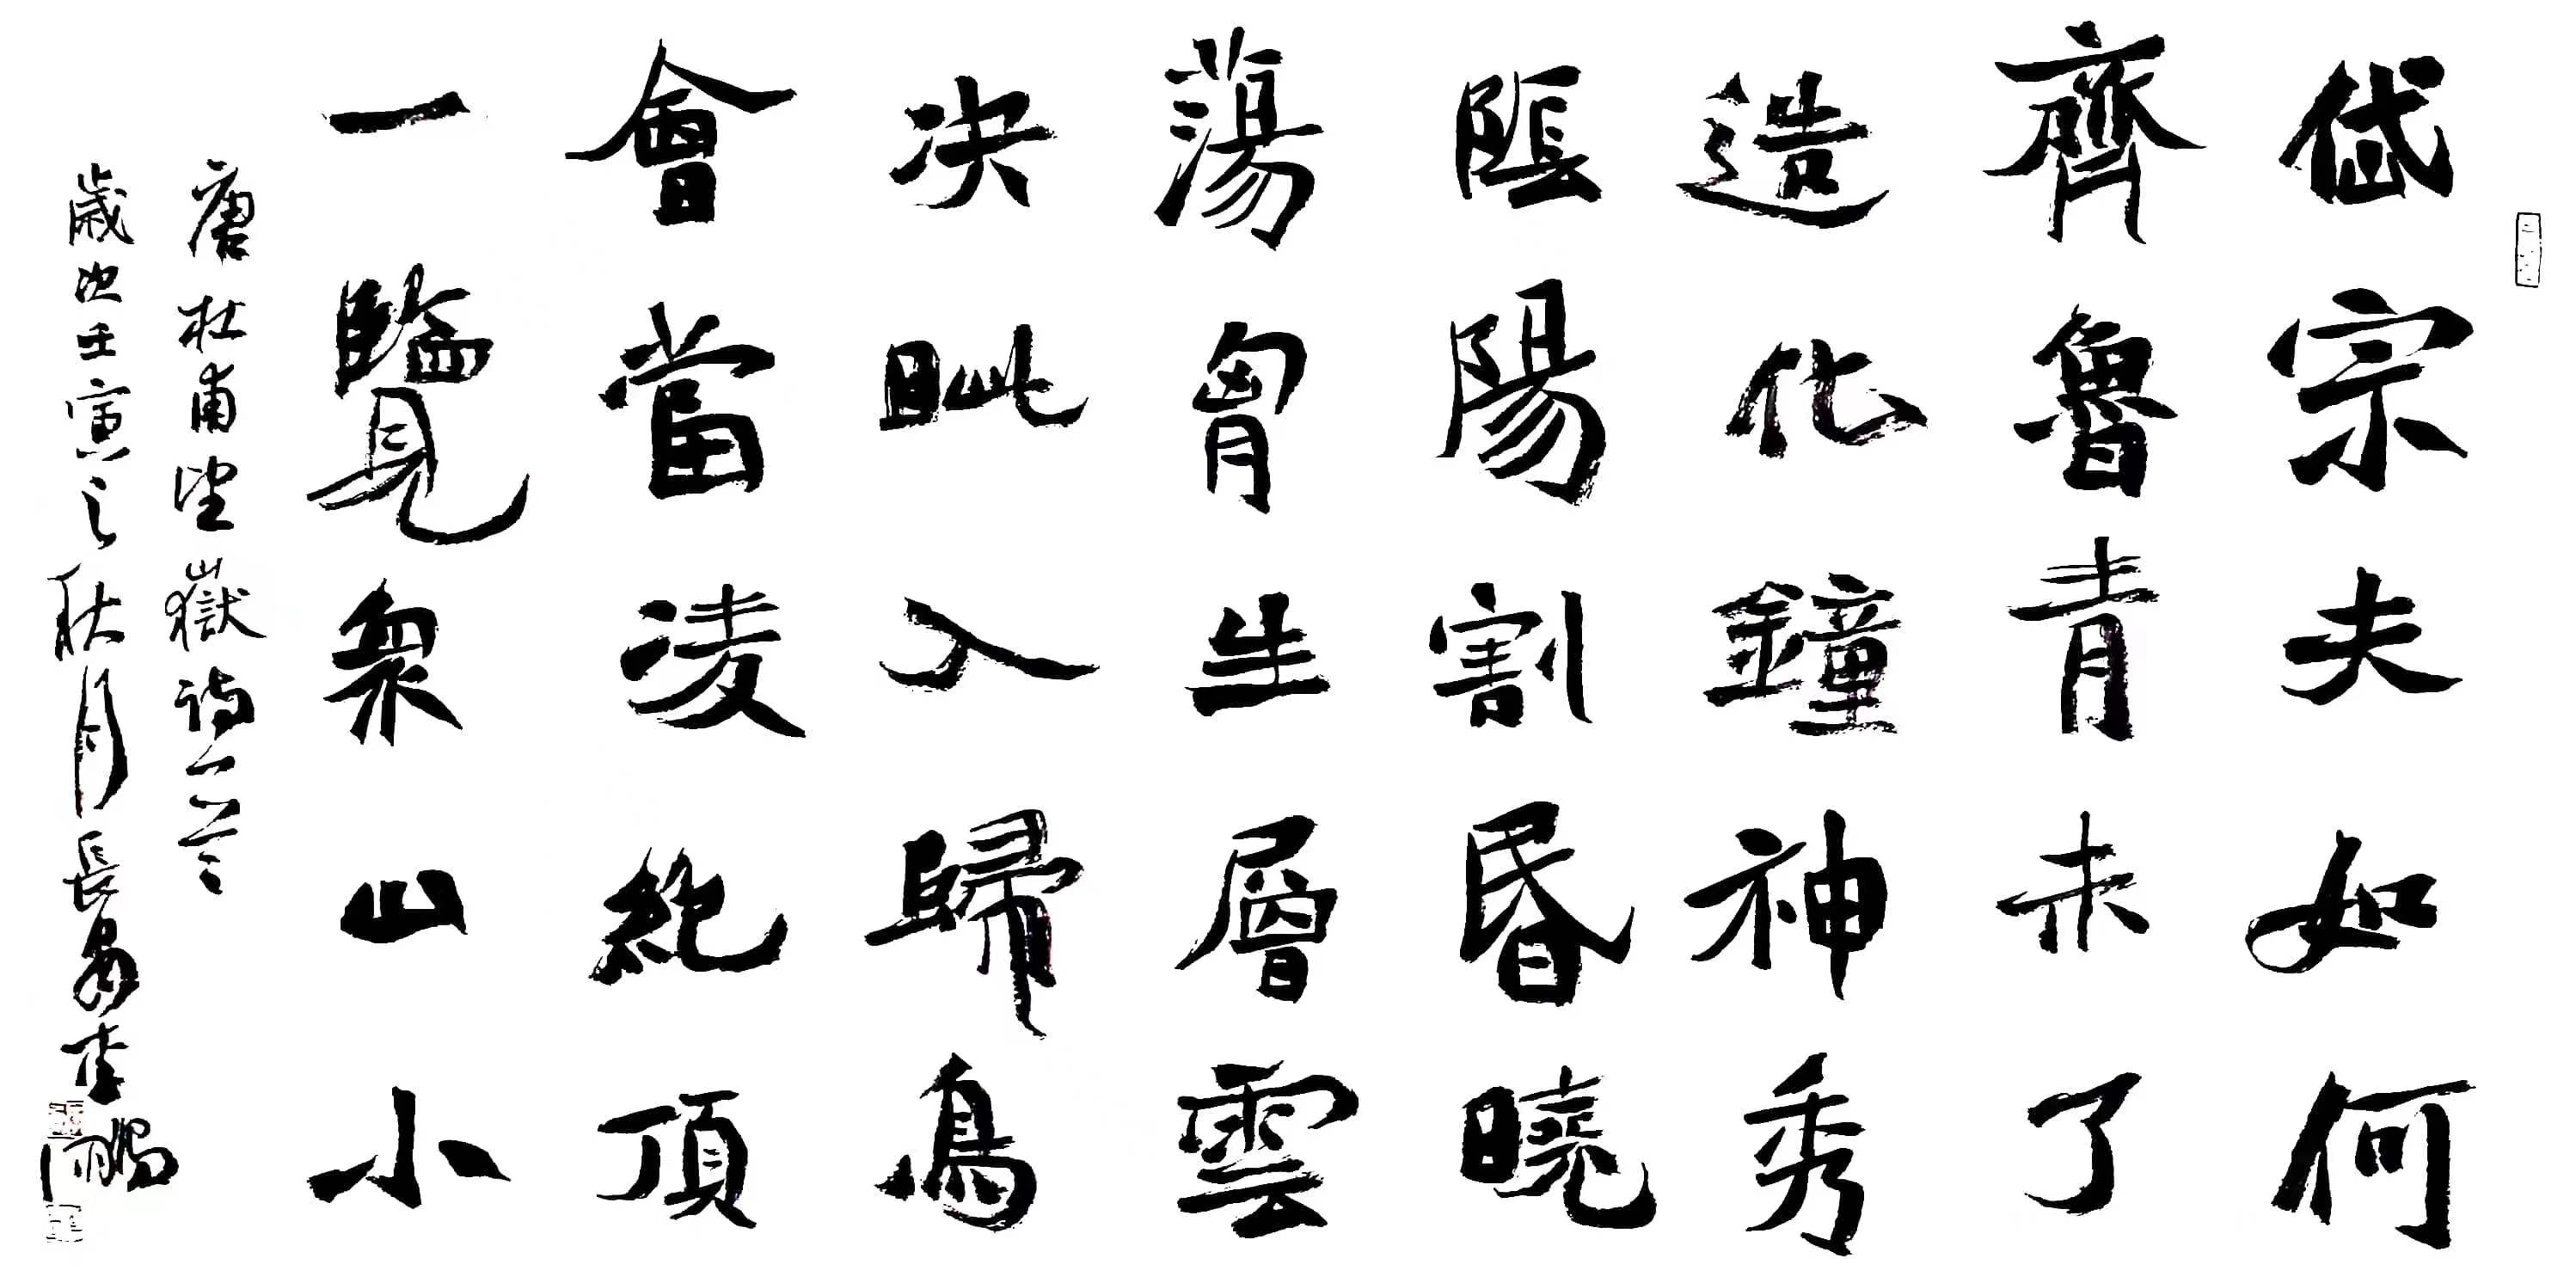 岱宗夫如何
齊魯青未了
造化鐘神秀
陰陽割昏曉
蕩胷生層雲
決眥入歸鳥
會當凌絶頂
一覽衆山小
唐杜甫望嶽詩一首
歲次壬寅之秋月長安李鵬